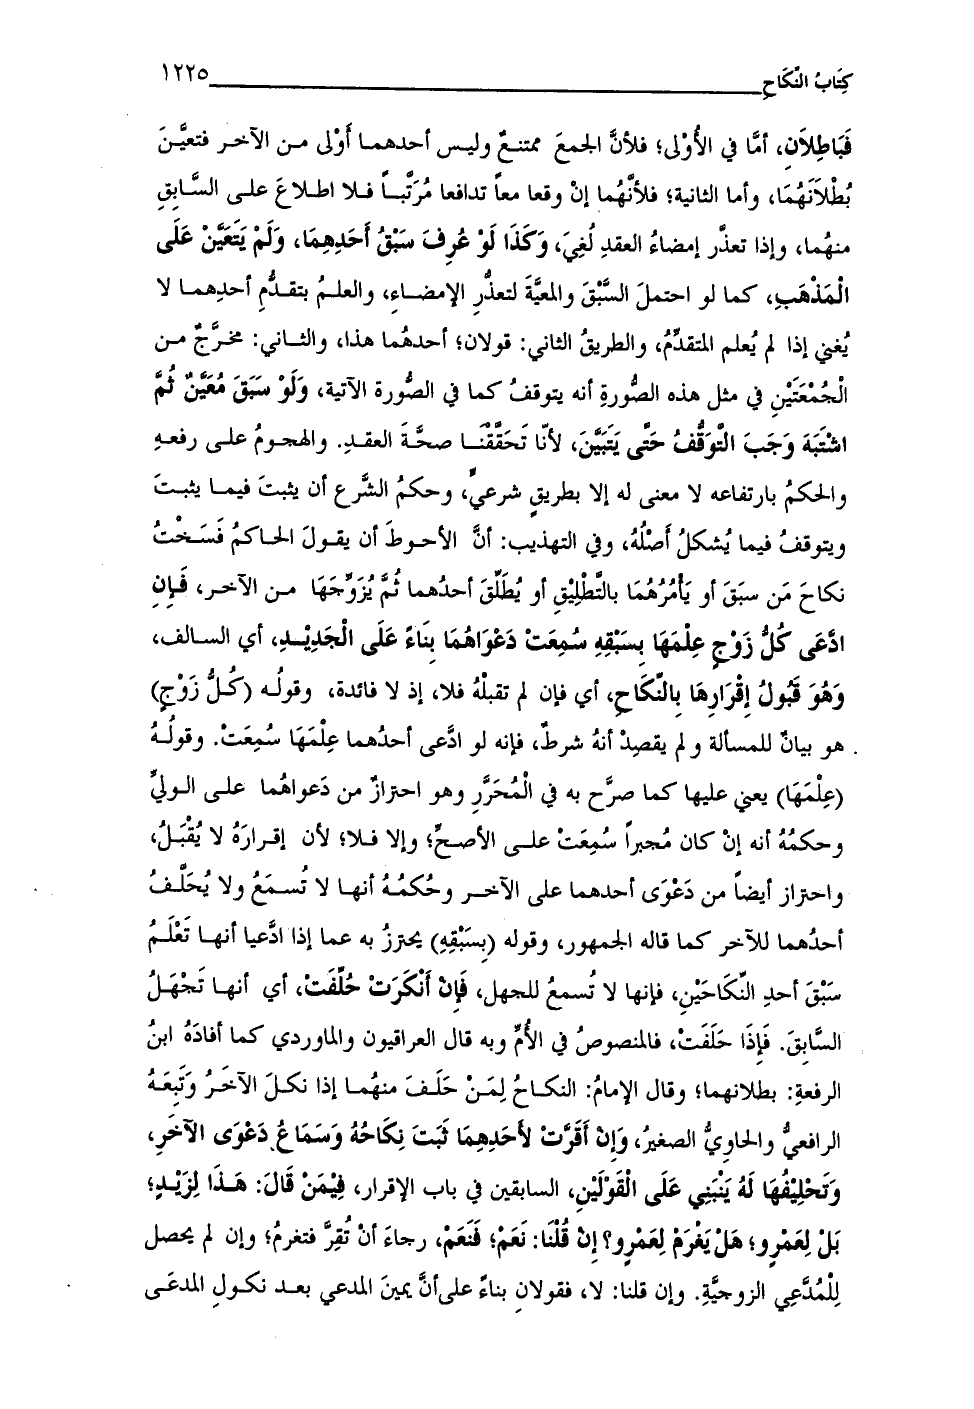 كِتَابُ النِّكَاحِ ١٢٢٥
فَبَاطِلاَنِ، أمَّا في الأُوْلى؛ فلأنَّ الجمعَ ممتنعٌ وليس أحدهما أَوْلى من الآخر فتعيَّنَ
بُطْلاَنُهُمَا، وأما الثانية؛ فلأنَّهُما إنْ وقعا معاً تدافعا مُرَتَّباً فلا اطلاعَ على السَّابقِ
منهُما، وإذا تعذَّر إمضاءُ العقدِ لُغِيَ، وَكَذَا لَوْ عُرِفَ سَبْقُ أَحَدِهِمَا، وَلَمْ يَتَعَيَّنْ عَلَى
الْمَذْهَبِ، كما لو احتملَ السَّبْقَ والمعيَّةَ لتعذُّرِ الإمضاءِ، والعلمُ بتقدُّمِ أحدِهما لا
يُغني إذا لم يُعلم المتقدِّمُ، والطريقُ الثاني: قولان؛ أحدهُما هذا، والثاني: مخرَّجٌ من
الْجُمْعَتَيْنِ في مثل هذه الصُّورةِ أنه يتوقفُ كما في الصُّورة الآتية، وَلَوْ سَبَقَ مُعَيَّنٌ ثُمَّ
اشْتَبَهَ وَجَبَ التَّوَقُّفُ حَتَّى يَتَبَيَّنَ، لأنّا تَحَقَّقْنَا صحَّةَ العقدِ. والهجومُ على رفعهِ
والحكمُ بارتفاعه لا معنى له إلا بطريقٍ شرعيٍّ، وحكمُ الشَّرع أن يثبتَ فيما يثبتَ
ويتوقفُ فيما يُشكلُ أَصْلُهُ، وفي التهذيب: أنَّ الأحوطَ أن يقولَ الحاكمُ فَسَخْتُ
نكاحَ مَن سبَقَ أو يَأْمُرُهُمَا بالتَّطْلِيْقِ أو يُطَلِّقَ أحدُهما ثُمَّ يُزَوِّجَهَا من الآخر، فَإِنِ
ادَّعَى كُلُّ زَوْجٍ عِلْمَهَا بِسَبْقِهِ سُمِعَتْ دَعْوَاهُمَا بِنَاءً عَلَى الْجَدِيْدِ، أي السالف،
وَهُوَ قَبُولُ إِقْرَارِهَا بِالنِّكَاحِ، أي فإن لم تقبلْهُ فلا، إذ لا فائدة، وقولُه (كُلُّ زَوْجٍ)
هو بيانٌ للمسألة ولم يقصِدْ أنهُ شرطٌ، فإنه لو ادَّعى أحدُهما عِلْمَهَا سُمِعَتْ. وقولُهُ
(عِلْمَهَا) يعني عليها كما صرَّح به في الْمُحَرَّرِ وهو احترازٌ من دَعواهُما على الوليِّ
وحكمُهُ أنه إنْ كان مُجبراً سُمِعَتْ على الأصحِّ؛ وإلا فلا؛ لأن إقرارَهُ لا يُقْبَلُ،
واحتراز أيضاً من دَعْوَى أحدهما على الآخر وحُكمُهُ أنها لا تُسمَعُ ولا يُحَلَّفُ
أحدُهما للآخر كما قاله الجمهور، وقوله (بِسَبْقِهِ) يحترزُ به عما إذا ادَّعيا أنها تَعْلَمُ
سَبْقَ أحدِ النِّكَاحَيْنِ، فإنها لا تُسمعُ للجهل، فَإِنْ أَنْكَرَتْ حُلِّفَتْ، أي أنها تَجْهَلُ
السَّابِقَ. فَإِذَا حَلَفَتْ، فالمنصوصُ في الأُمِّ وبه قال العراقيون والماوردي كما أفادَهُ ابنُ
الرفعةِ: بطلانهما؛ وقال الإمامُ: النكاحُ لِمَنْ حَلَفَ منهُما إذا نكلَ الآخَرُ وَتَبِعَهُ
الرافعيُّ والحاوِيُّ الصغيرُ، وَإِنْ أَقَرَّتْ لأَحَدِهِمَا ثَبَتَ نِكَاحُهُ وَسَمَاعُ دَعْوَى الآخَرِ،
وَتَحْلِيْفُهَا لَهُ يَنْبَنِي عَلَى الْقَوْلَيْنِ، السابقين في باب الإقرار، فِيْمَنْ قَالَ: هَذَا لِزَيْدٍ؛
بَلْ لِعَمْرٍو؛ هَلْ يَغْرَمُ لِعَمْرٍو؟ إِنْ قُلْنَا: نَعَمْ؛ فَنَعَمْ، رجاءَ أنْ تُقِرَّ فتغرمُ؛ وإن لم يحصل
لِلْمُدَّعِي الزوجيَّةِ. وإن قلنا: لا، فقولانِ بناءً على أنَّ يمينَ المدعي بعد نكولِ المدعَى